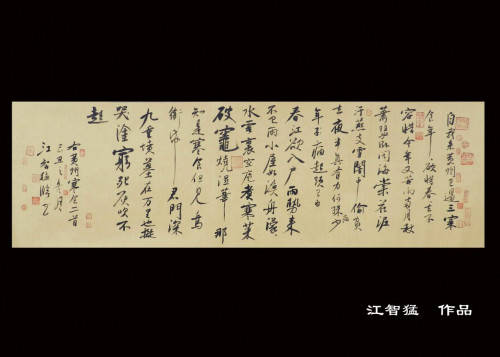 自我來黄州已過三寒
食年年欲惜春春去不
容惜今年又苦雨兩月秋
蕭瑟卧聞海棠花泥
汙燕支雪闇中偷負
去夜半真有力何殊少
年子病起頭已白
春江欲入户雨勢來
不已雨小屋如漁舟濛濛
水雲裏空庖煮寒菜
破竈燒濕葦那
知是寒食但見烏
銜帋君門深
九重墳墓在万里也擬
哭塗窮死灰吹不
起
右黄州寒食二首
江智猛臨
江智猛 作品